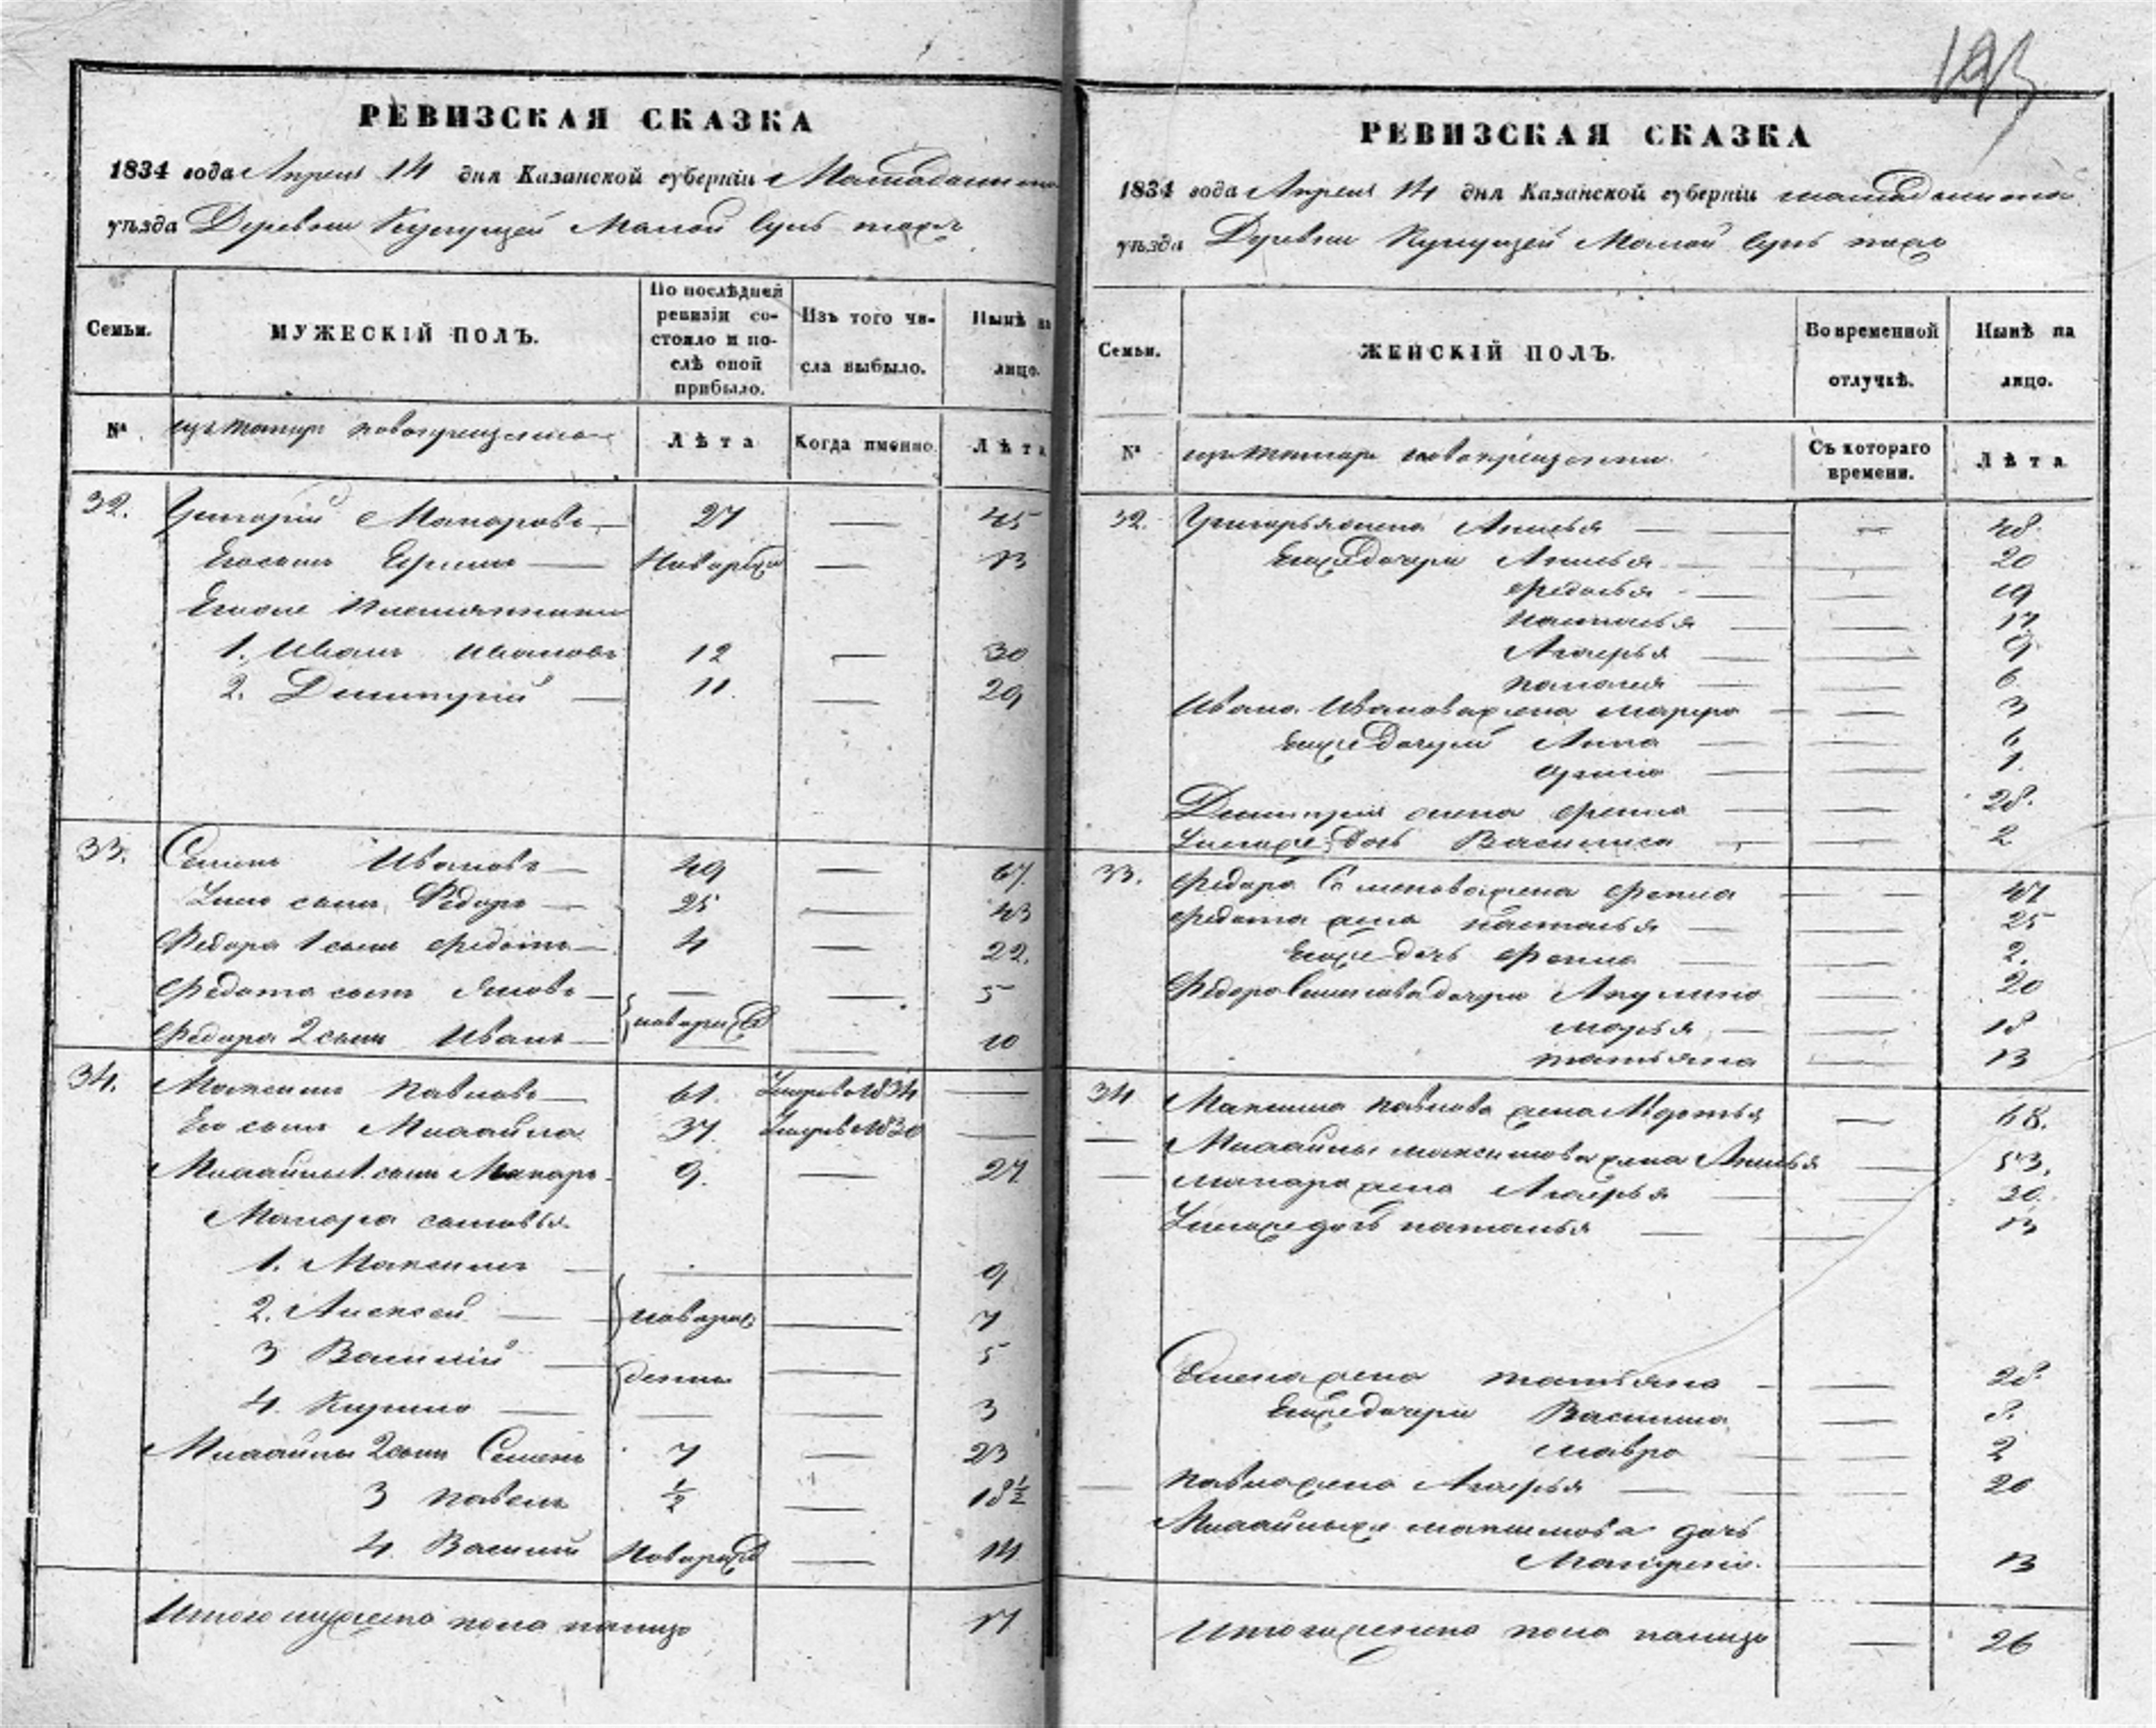 193
РЕВИЗСКАЯ СКАЗКА
1834 года Апреля 14 дня Казанской губерніи Мамадышска
уѣзда Деревни Малой Сунь тожъ
Семьи.
МУЖЕСКІЙ ПОЛЪ.
По послѣдней ревизіи состояло и послѣ оной прибыло.
Изъ того числа выбыло.
Нынѣ на лицо.
№
изъ татаръ новокрещеные
Лѣта
Когда именно.
Лѣта
32. Григорій Макаровъ — 27 — 45
Его сынъ Ефимъ — Новорож — 13
Его же Племянники
1. Иванъ Ивановъ 12 — 30
2. Димитрій — 11. — 29
33. Семенъ Ивановъ — 49 — 67.
сынъ Ѳедоръ — 25 — 43
Ѳедора 1 сынъ Ѳедотъ — 4 — 22.
Ѳедота сынъ — — — 5
новорож
Ѳедора 2 сынъ Иванъ — — 10
34. Максимъ Павловъ — 61. Умеръ в 1834 —
Его сынъ Михайла 37. Умеръ в 1830 —
Михайлы 1. сынъ Макаръ 9. — 27
Макара сыновья
1. Максимъ — — 9
2. Алексей — новорож — 7
3 Василій — денны — 5
4. Кирило — — — 3
Михайлы 2 сынъ Семенъ 7 — 23
3 Павелъ ½ — 18½
4. Василій Новорож — 14
Итого мужеска пола налицо 17
РЕВИЗСКАЯ СКАЗКА
1834 года Апреля 14 дня Казанской губерніи мамадышска
уѣзда Деревни Малой Сунь тожъ
Семьи.
ЖЕНСКІЙ ПОЛЪ.
Во временной отлучкѣ.
Нынѣ на лицо.
№
изъ татаръ новокрещенны
Съ котораго времени.
Лѣта
32. Григорья жена Анисья — — 48.
Его же дочери Анисья — — 20
Ѳедосья — — 19
Наталья — — 17
Агафья — — 9
— — 6
Ивана Иванова жена марфа — — 3
Его же Дочери Анна — — 6
— — 1.
Димитрія жена Ѳекла — — 28.
дочь Василиса — — 2
33. Ѳедора Семенова жена Ѳекла — 47
Ѳедота жена наталья — — 25
Его же дочь Ѳекла — — 2.
Ѳедора Семенова дочери Акулина — 20
марья — — 18
татьяна — 13
34 Максима павлова жена Авдотья — 68.
— Михайлы максимова жена Анисья — 53.
— макара жена Агафья — — 30.
дочь наталья — — 13
Семена жена татьяна — — 28
Его же дочери Василиса — 8.
мавра — — 2
— павла жена Агафья — — 20
Михайлы же максимова дочь
— 13
Итого женска пола налицо — 26